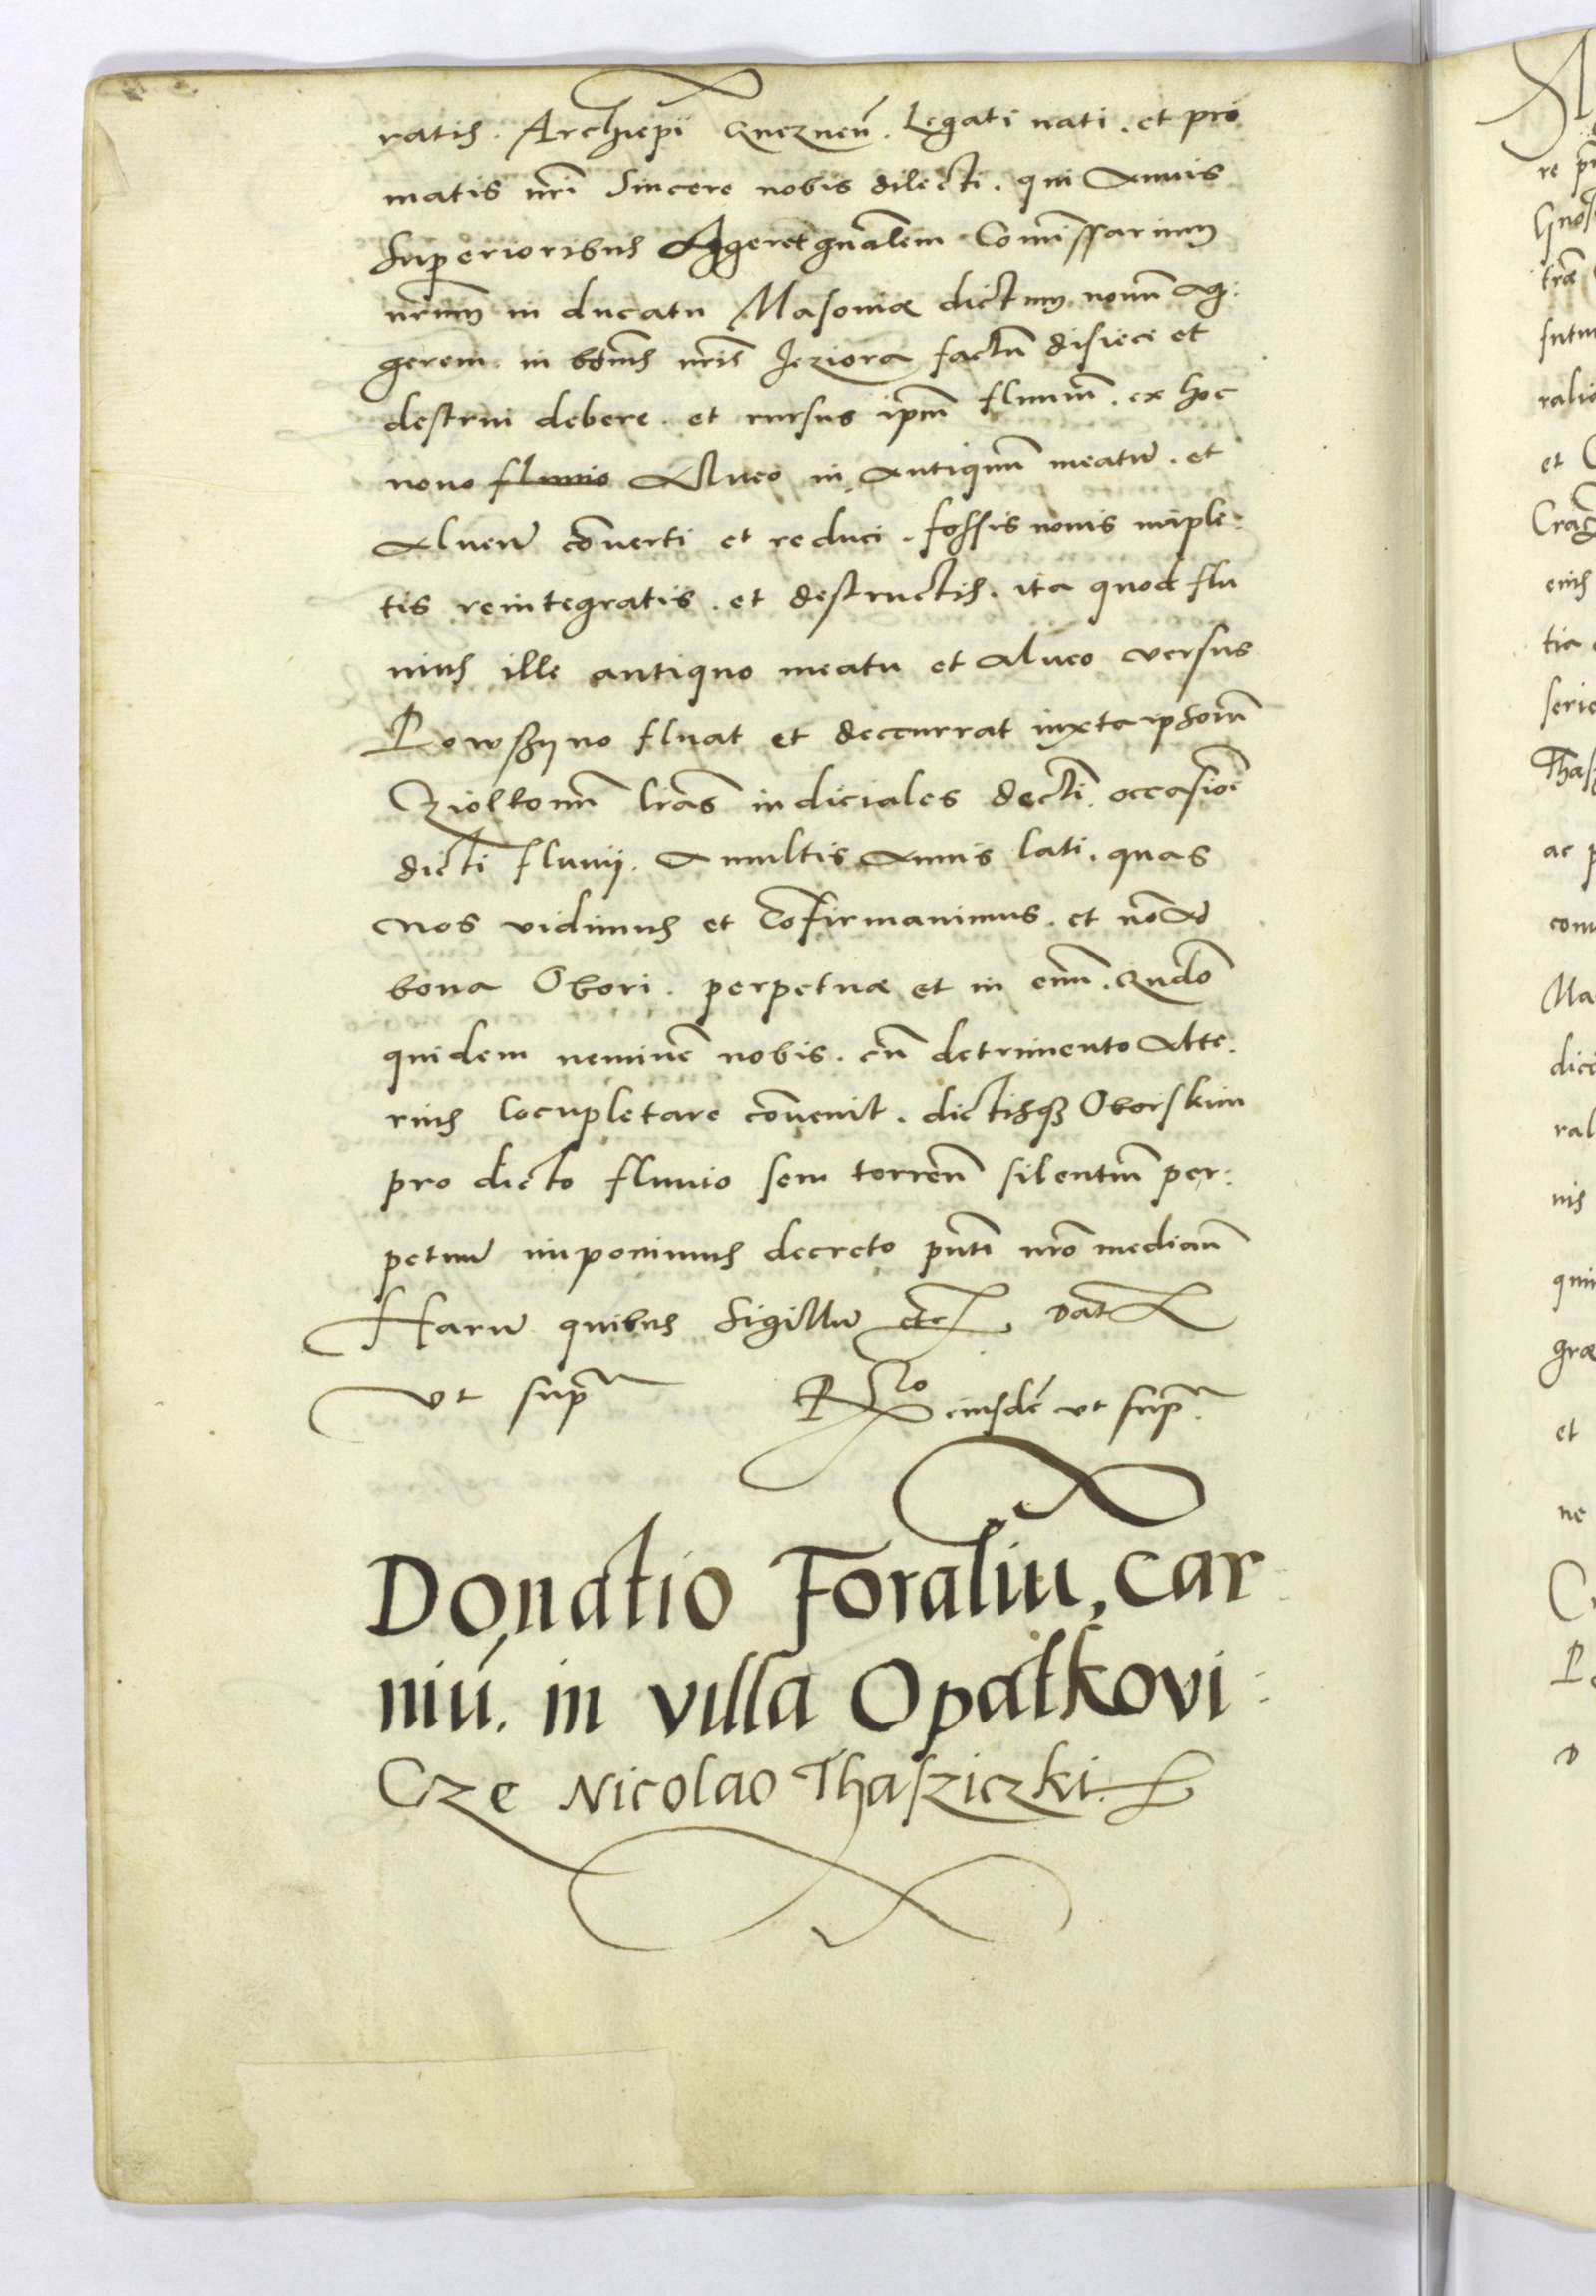 ratis. Archiepi Gneznen̄. Legati nati. et pri
matis nr̄i Sincere nobis dilecti. qui Annis
Superioribus Ageret gnalem Comissarium
nrum in ducatu Masoviæ dictum novum Ag:
gerem in bonis nris Jeziora factū disieci et
destrui debere. et rursus ipm fluvium. ex hoc
novo fluvio Alveo in Antiquum meatū. et
Alveū cōverti et reduci. fossis novis imple:
tis reintegratis. et destructis. ita quod flu
vius ille antiquo meatu et alveo versus
Powszyno fluat et deccurrat iuxta ipsorum
Cziolkonum lr̄as iudiciales decti occasiōe
dicti fluvij. A multis Annis lati. quas
nos vidimus et Cōfirmavimus. et nō Ad
bona Obori. perpetuæ et in evum. Quādo
quidem neminē nobis. cū detrimento Alte:
rius locupletare cōvenit. dictisqз Oborskim
pro dicto fluvio seu torren̄ silentium per:
petuū imponimus decreto pn̄ti nr̄o median̄
Harū quibus Sigillū etc. Dat
vt supra Rlo eiusdē vt supra
Donatio Foraliū, car
niū. in villa Opatkovi:
Cze Nicolao Thasziczki.